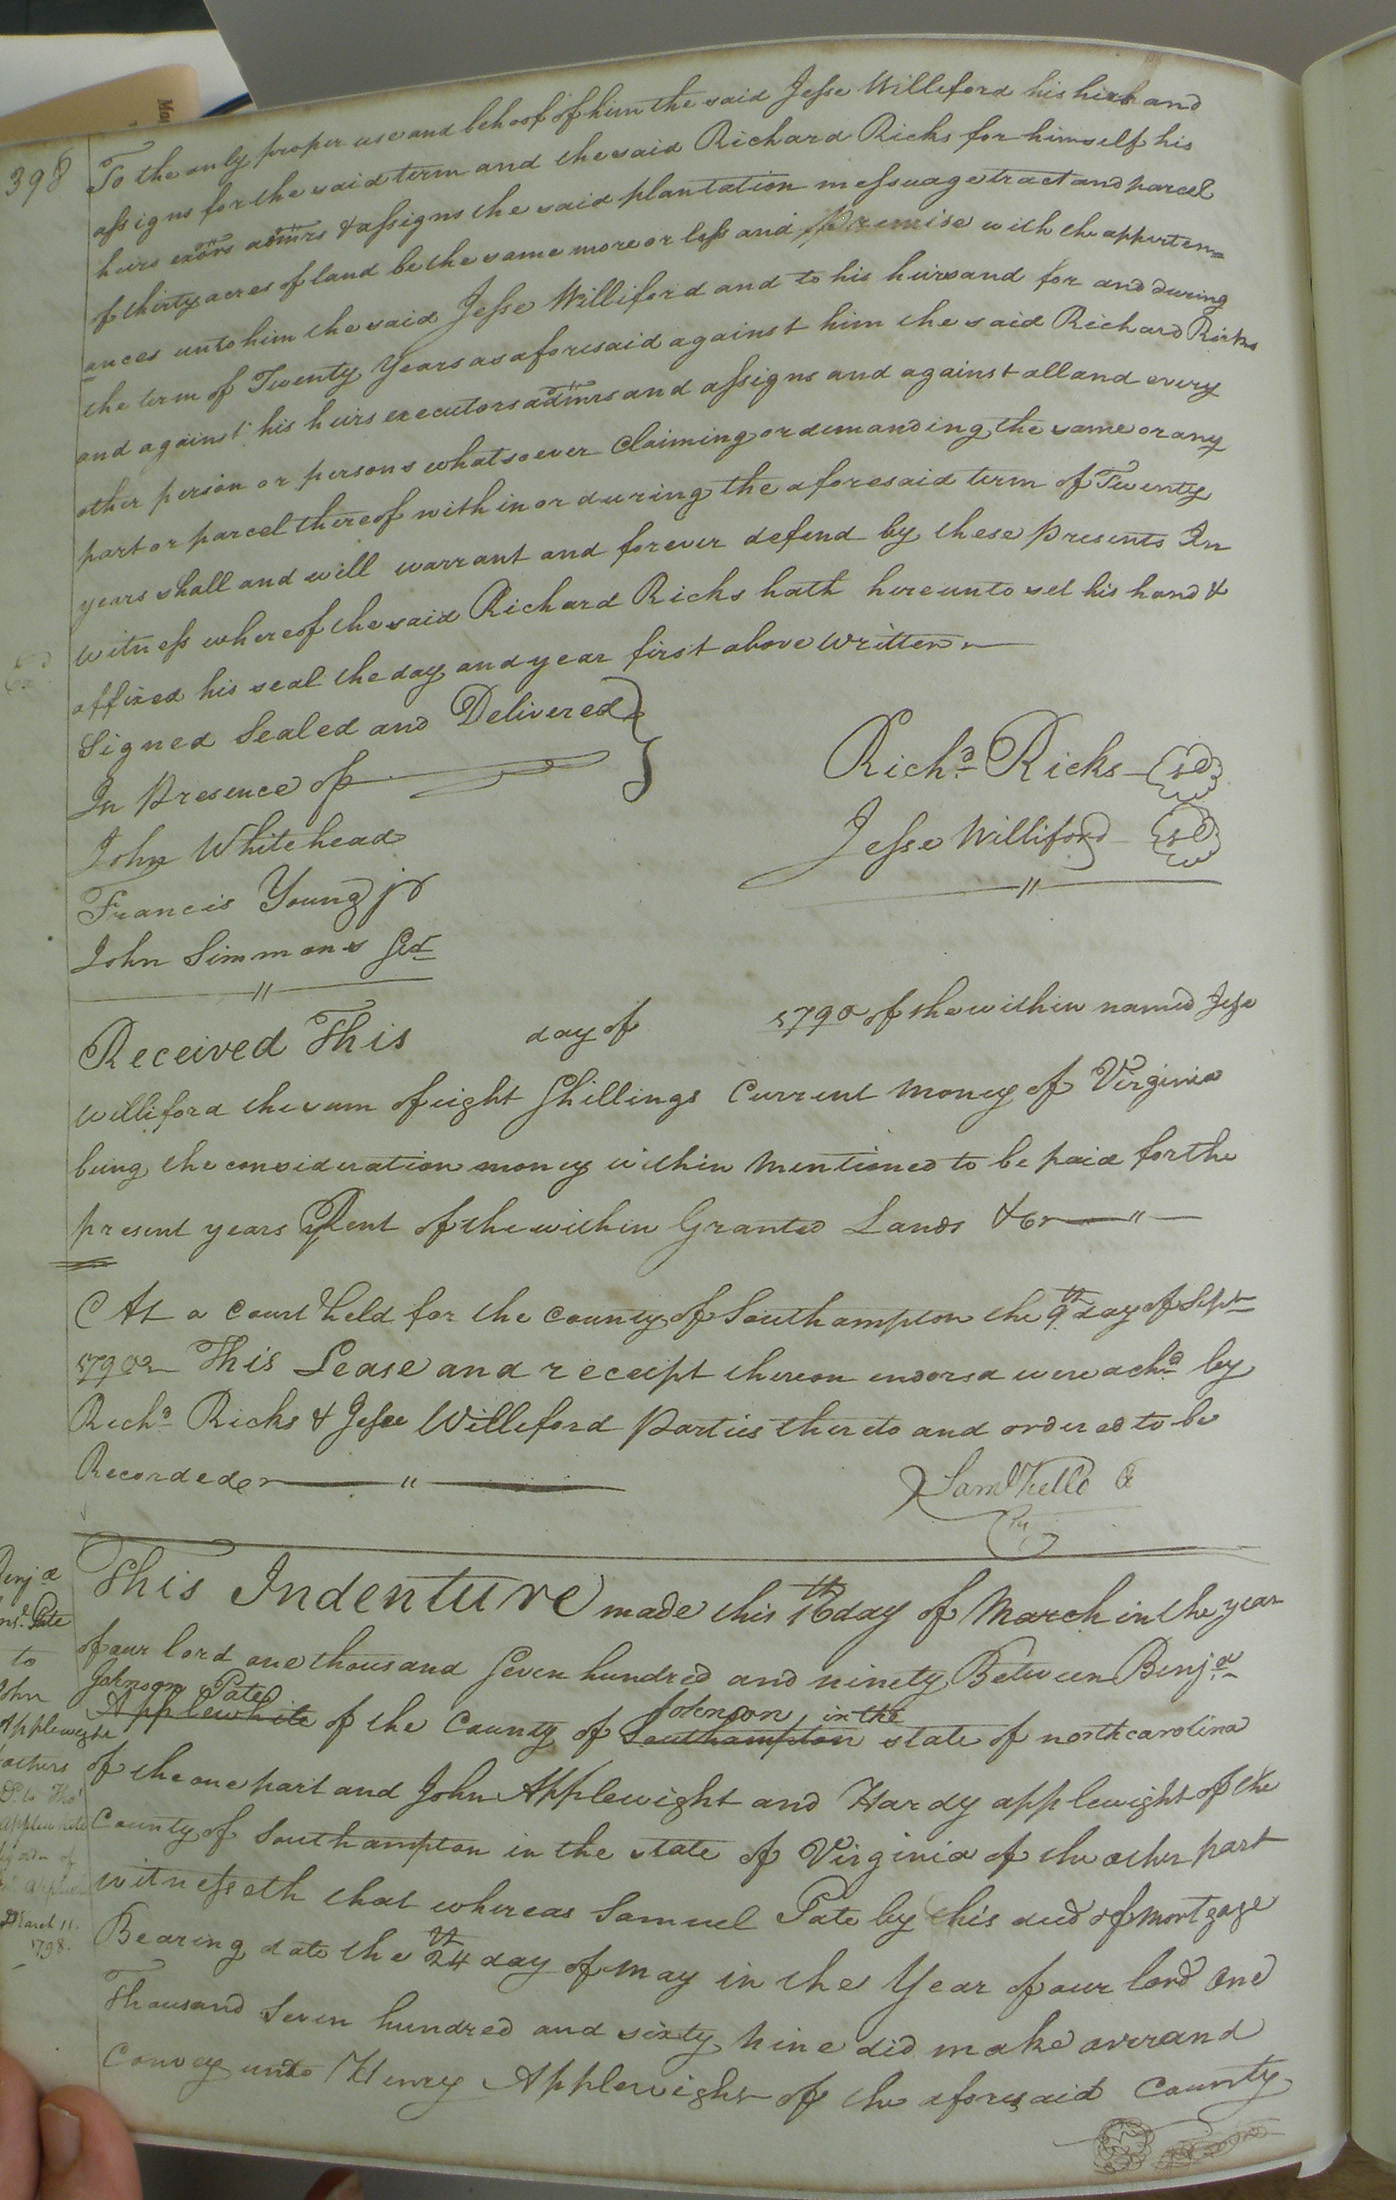 398
To the only proper use and behoof of him the said Jesse Williford his heirs and
assigns for the said term and the said Richard Ricks for himself his
heirs exors admrs & assigns the said plantation messuage tract and parcel
of thirty acres of land be the same more or less and premise with the apperten=
ances unto him the said Jesse Williford and to his heirs and for and during
the term of Twenty Years as aforesaid against him the said Richard Ricks
and against his heirs executors admrs and assigns and against all and every
other person or persons whatsoever Claiming or demanding the same or any
part or parcel thereof with in or during the aforesaid term of Twenty
years shall and will warrant and forever defend by these presents In
witness whereof the said Richard Ricks hath hereunto set his hand &
affixed his seal the day and year first above written
Signed Sealed and Delivered
In Presence of
John Whitehead
Francis Young jr
John Simmons
Richd. Ricks
Jesse Williford
Received This day of 1790 of the within named Jesse
Williford the sum of eight Shillings Current money of Virginia
being the consideration money within Mentioned to be paid for the
present years Rent of the within Granted Lands &c
At a Court held for the County of Southampton the 9th day of Sept
1790 This Lease and receipt thereon endorsd were ackd by
Richd Ricks & Jesse Williford Parties thereto and ordered to be
Recorded
Saml Kello
This Indenture made this 16th day of March in the year
of our lord one thousand Seven hundred and ninety Between Benja
Johnson Pate
Applewhite of the County of Southampton state of north carolina
Johnson in the
of the one part and John Applewight and Hardy applewight of the
County of Southampton in the state of Virginia of the other part
witnesseth that whereas Samuel Pate by his deed of mortgage
Bearing date the 24th day of may in the Year of our lord One
Thousand Seven hundred and sixty nine did make over and
Convey unto Henry Applewight of the aforesaid County
Benja
Pate
to
John
Applewight
others
March 11.
1798.